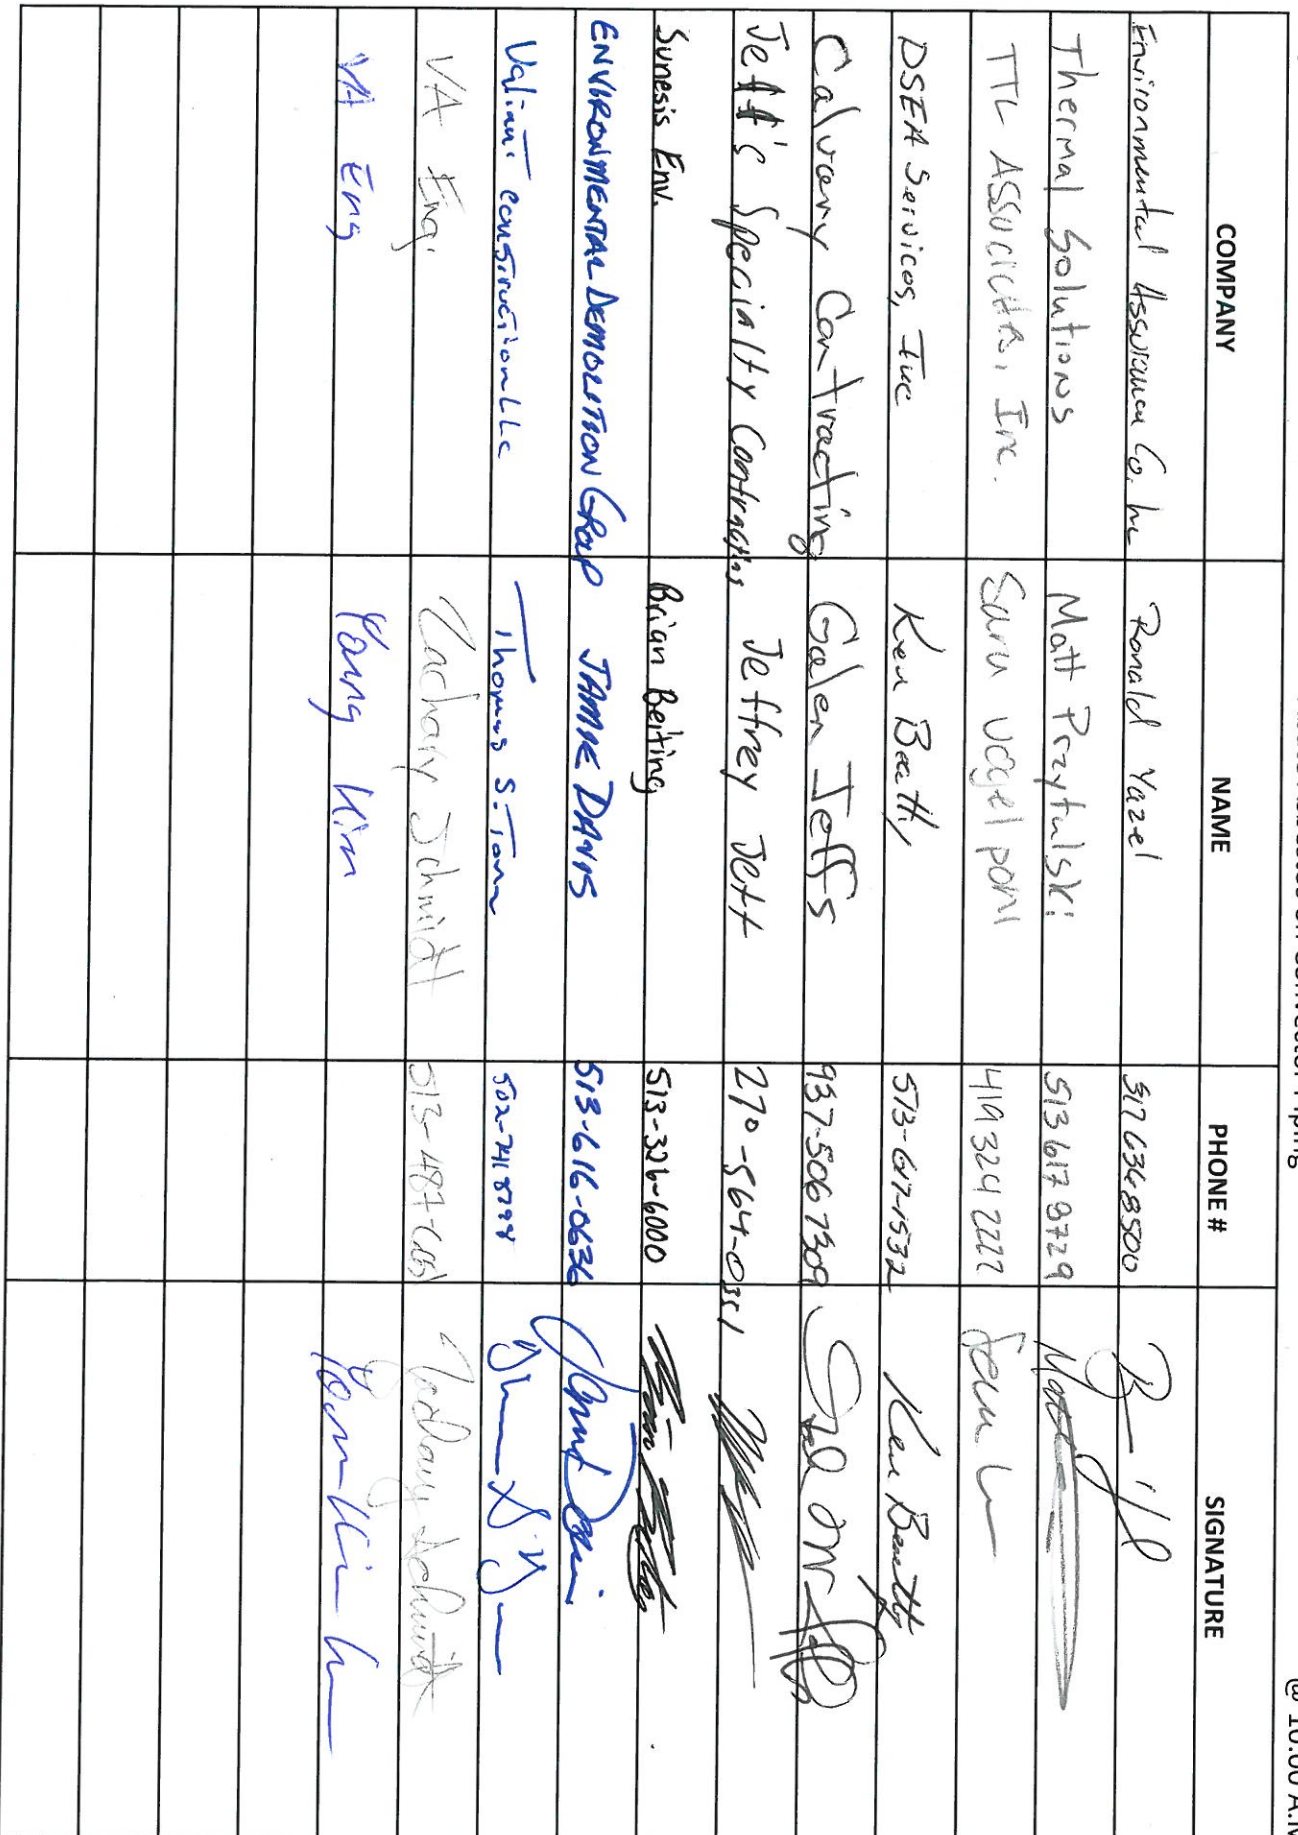 @ 10:00 A.M
COMPANY NAME PHONE # SIGNATURE
Environmental Assurance Co. Inc Ronald Yazel 317 634 8500
Thermal Solutions Matt Przytulski 513 617 9729 Matt
TTL Associates, Inc. 419 324 2222
DSEA Services, Inc Ken Beatty 513-617-1532 Ken Beatty
Calvary Contracting Galen Jeffs 937-506 7309
Jeff's Specialty Contracting Jeffrey Jeff 270-564-0351
Sunesis Env. Brian Beiting 513-326-6000
ENVIRONMENTAL DEMOLITION GROUP JAMIE DAVIS 513-616-0636
Valiant Construction LLC Thomas S. 502-741
VA Eng. Zachary Schmidt 513-487- Zachary Schmidt
VA Eng Yong Kim